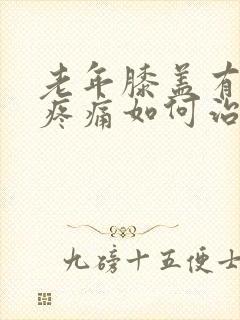 老年膝盖有
疼痛如何治
九磅十五便士